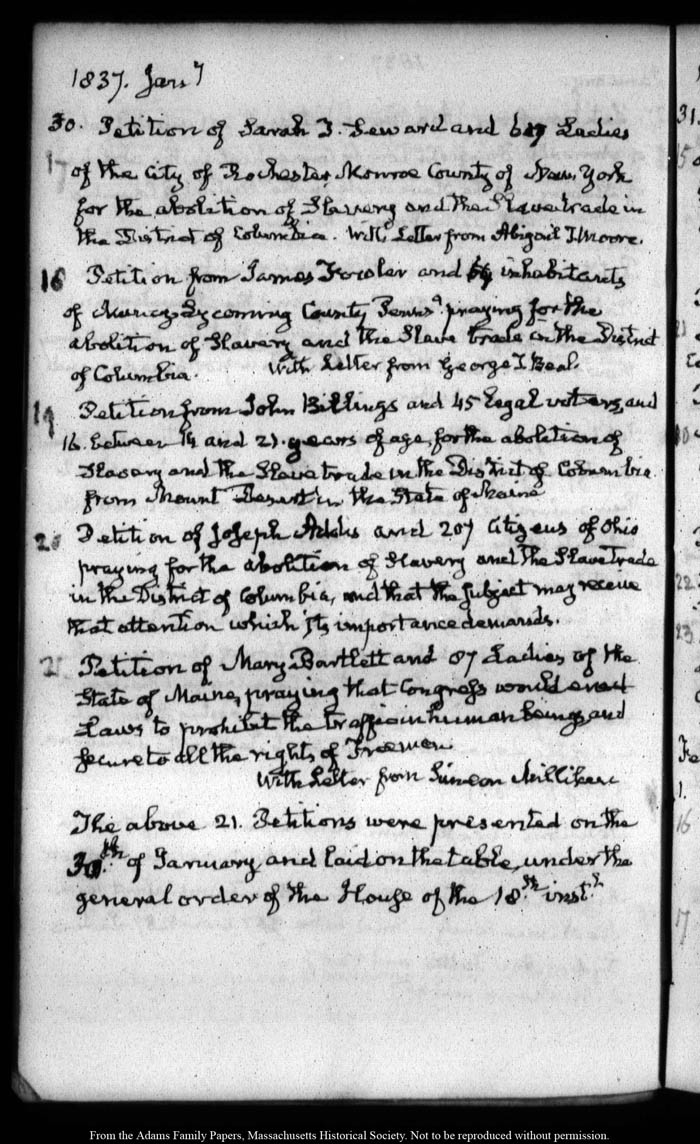 1837. Jan.y
30. Petition of Sarah T. Seward and 617 Ladies
17 of the City of Rochester, Monroe County of New York
for the abolition of Slavery and the Slave trade in
the District of Columbia. With Letter from Abigail T. Moore.
18 Petition from James Fowler and inhabitants
of Muncy, Lycoming County Penns.a praying for the
abolition of Slavery and the Slave trade in the District
of Columbia. With Letter from George T. Beal.
19 Petition from John Billings and 45 legal voters, and
16. between 14 and 21. years of age, for the abolition of
Slavery and the Slave trade in the District of Columbia
from Mount Desert in the State of Maine
20 Petition of Joseph Addis and 207 Citizens of Ohio
praying for the abolition of Slavery and the Slave Trade
in the District of Columbia, and that the subject may receive
that attention which its importance demands.
21 Petition of Mary Bartlett and 87 Ladies of the
State of Maine, praying that Congress would enact
Laws to prohibit the traffic in human beings, and
secure to all the rights of Freemen
With Letter from Simeon Milliken
The above 21. Petitions were presented on the
30.th of January, and laid on the table, under the
general order of the House of the 18.th inst.t
31.
15
21
10
22
23
1.
16
17
From the Adams Family Papers, Massachusetts Historical Society. Not to be reproduced without permission.